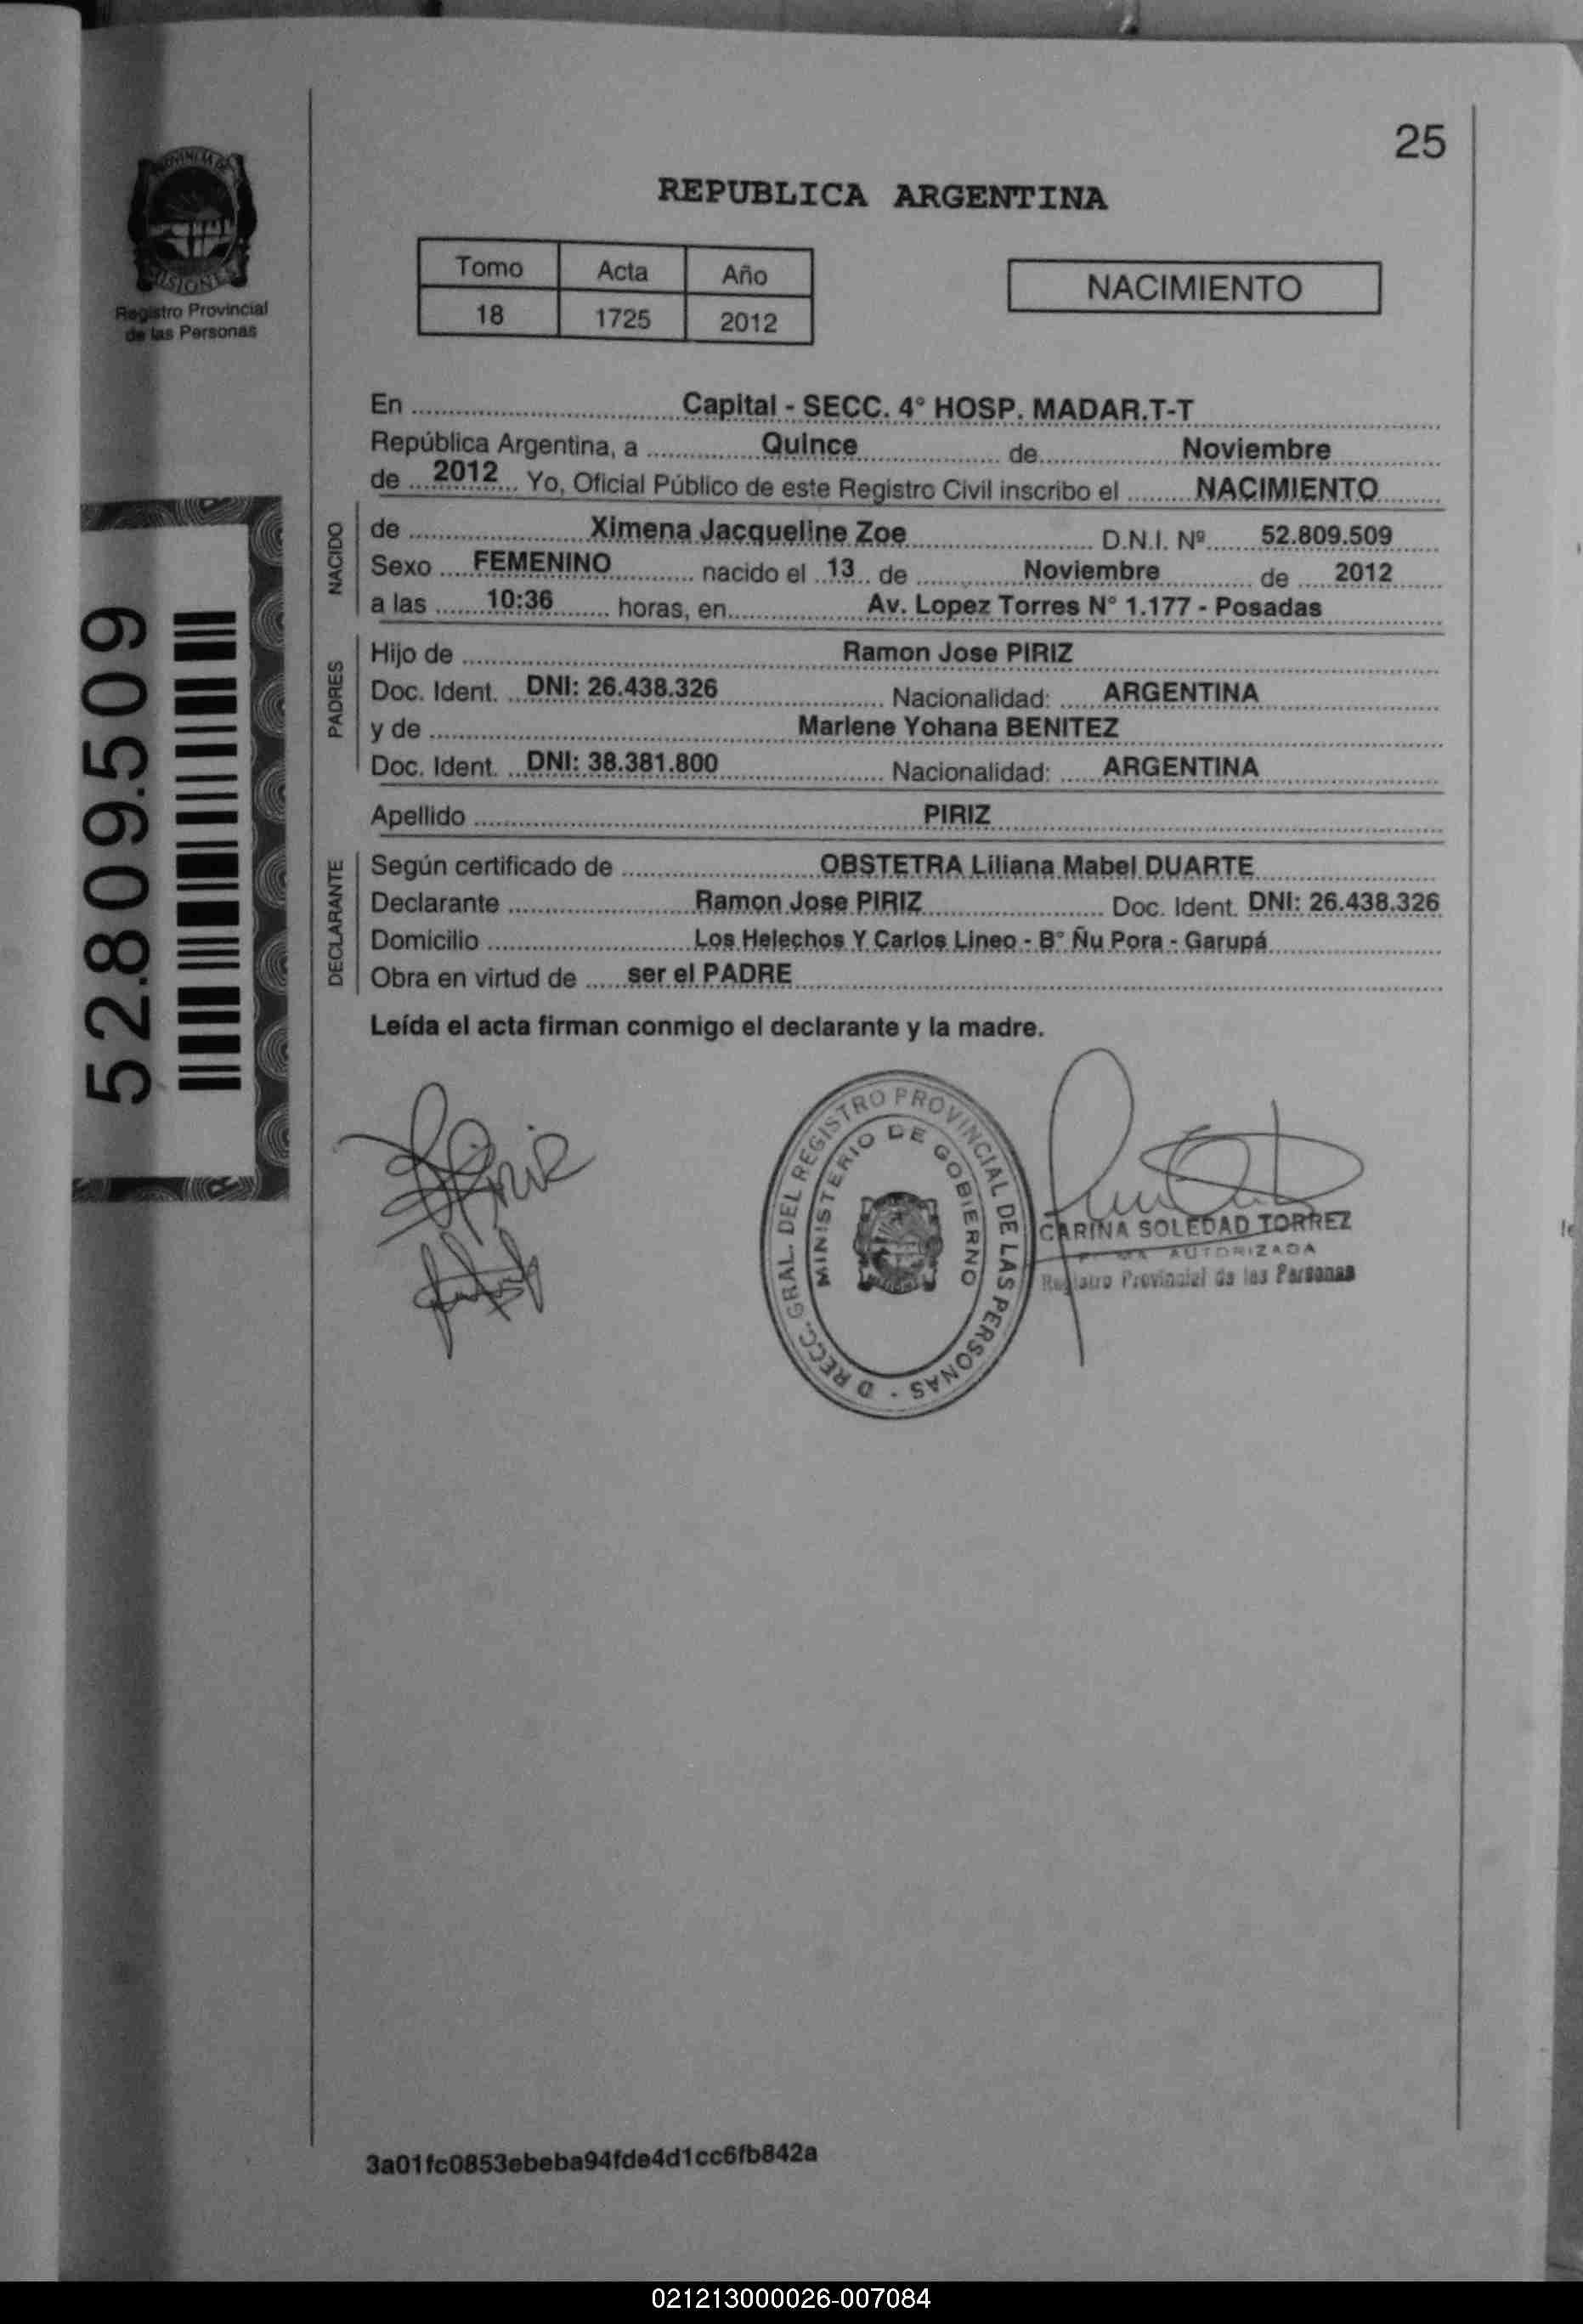 25
REPUBLICA ARGENTINA
PROVINCIA DE
MISIONES
Registro Provincial
de las Personas
Tomo Acta Año
18 1725 2012
NACIMIENTO
En Capital - SECC. 4° HOSP. MADAR.T-T
República Argentina, a Quince de Noviembre
de 2012 Yo, Oficial Público de este Registro Civil inscribo el NACIMIENTO
NACIDO
de Ximena Jacqueline Zoe D.N.I. Nº 52.809.509
Sexo FEMENINO nacido el 13 de Noviembre de 2012
a las 10:36 horas, en Av. Lopez Torres N° 1.177 - Posadas
PADRES
Hijo de Ramon Jose PIRIZ
Doc. Ident. DNI: 26.438.326 Nacionalidad: ARGENTINA
y de Marlene Yohana BENITEZ
Doc. Ident. DNI: 38.381.800 Nacionalidad: ARGENTINA
Apellido PIRIZ
DECLARANTE
Según certificado de OBSTETRA Liliana Mabel DUARTE
Declarante Ramon Jose PIRIZ Doc. Ident. DNI: 26.438.326
Domicilio Los Helechos Y Carlos Lineo - B° Ñu Pora - Garupá
Obra en virtud de ser el PADRE
Leída el acta firman conmigo el declarante y la madre.
52.809.509
DIRECC. GRAL. DEL REGISTRO PROVINCIAL DE LAS PERSONAS -
MINISTERIO DE GOBIERNO
CARINA SOLEDAD TORREZ
FIRMA AUTORIZADA
Registro Provincial de las Personas
3a01fc0853ebeba94fde4d1cc6fb842a
021213000026-007084